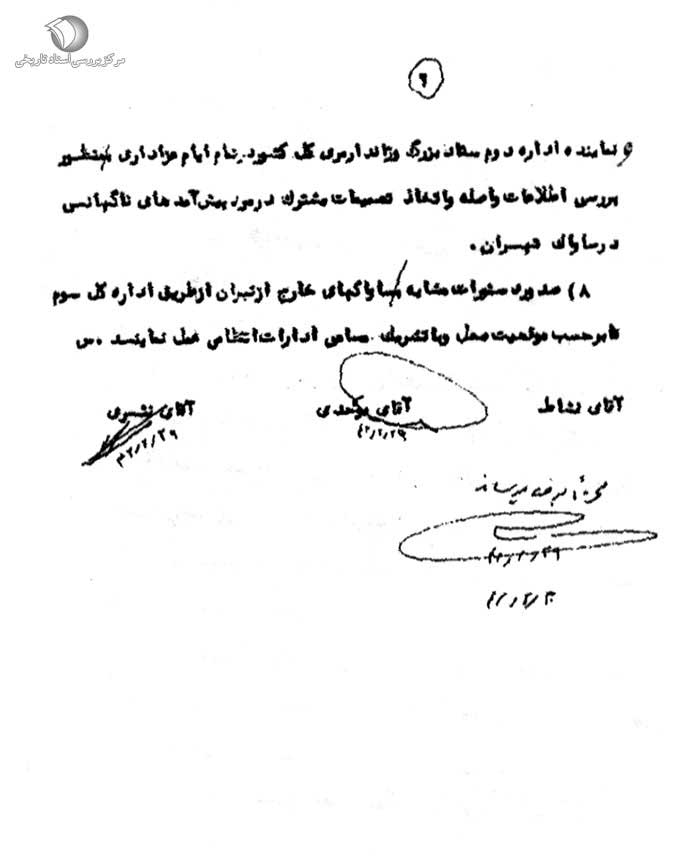 مرکز بررسی اسناد تاریخی
و نماینده اداره دوم ستاد بزرگ و ژاندارمری کل کشور در تمام ایام عزاداری بمنظور
بررسی اطلاعات واصله و اتخاذ تصمیمات مشترک در مورد پیش‌آمد های ناگهانی
در ساواک تهران .
۸) صدور دستورات مشابه بساواکهای خارج از تهران از طریق اداره کل سوم
تا بر حسب موقعیت محل و با تشریک مساعی ادارات انتظامی عمل نمایند .
آقای نشاط آقای آقای
۴۲/۲/۲۹ ۴۲/۲/۲۹
میرساند
۴۲/۲/۲۹